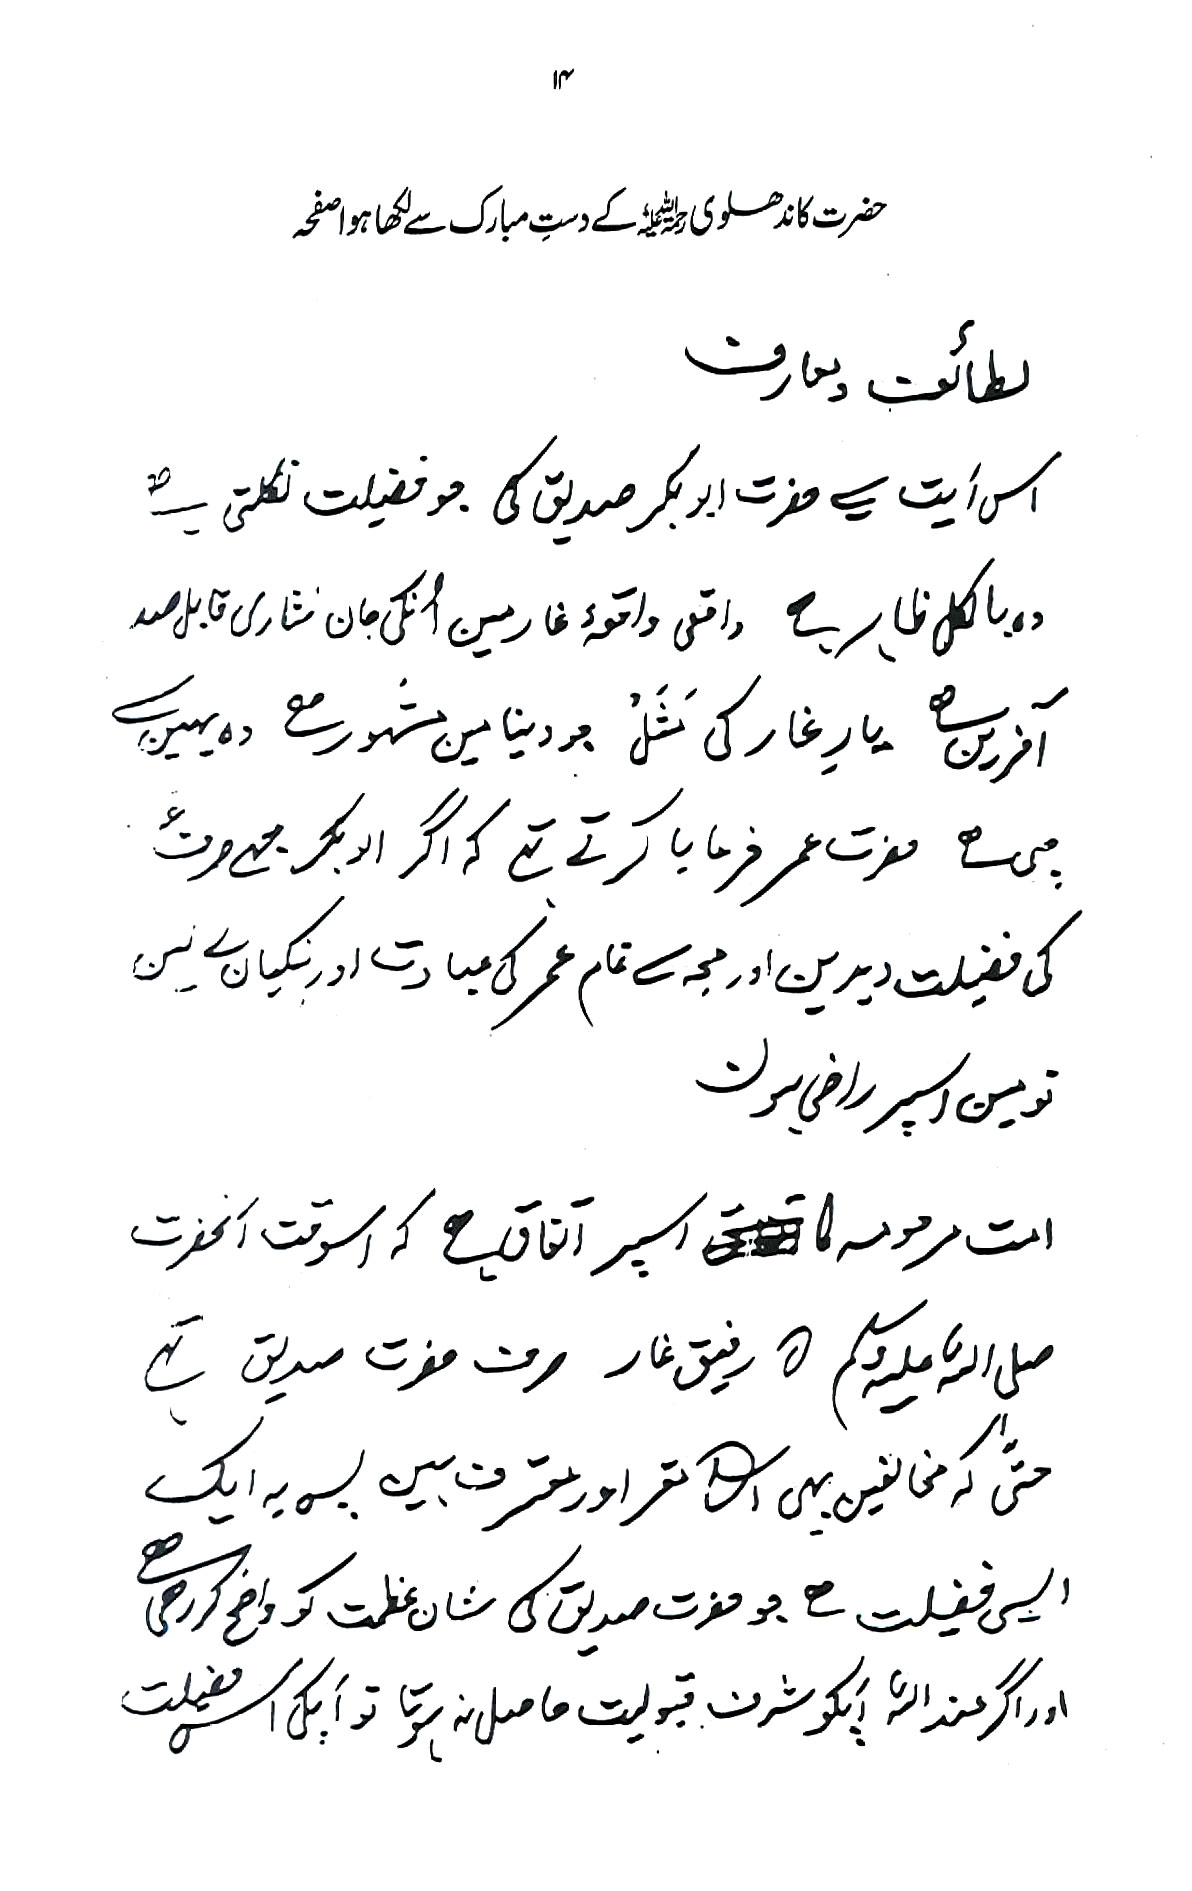 ۱۴
حضرت کاندھلوی رحمۃ اللہ علیہ کے دستِ مبارک سے لکھا ہوا صفحہ
لطائف و معارف
اس آیت سے حضرت ابو بکر صدیق کی جو فضیلت نکلتی ہے
وہ بالکل ظاہر ہے واقعی واقعۂ غار مین اُنکی جان نثاری قابل صد
آفرین ہے یارِ غار کی مَثَلْ جو دینا مین مشہور ہے وہ یہین سے
چلی ہے حضرت عمر فرمایا کرتے تھے کہ اگر ابو بکر مجھے صرف
کی فضیلت دیدین اور مجہ سے تمام عمر کی عبادت اور نیکیان لے لین
تو مین اسپر راضی ہون
امت مرحومہ کا اسپر اتفاق ہے کہ اسوقت آنحضرت
صلی اللہ علیہ وسلم کا رفیق غار صرف حضرت صدیق تھے
حتیّٰ کہ مخالفین بھی اس کا مقر اور معترف ہین پس یہ ایک
ایسی فضیلت ہے جو حضرت صدیق کی شان عظمت کو واضح کر رہی ہے
اور اگر عند اللہ آپکو شرف قبولیت حاصل نہ ہوتا تو آپکی اس فضیلت